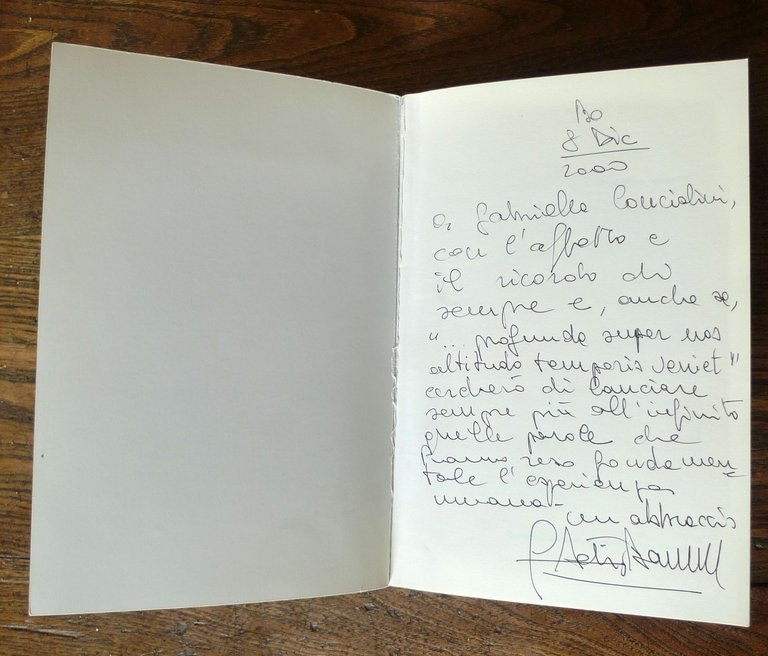 Bo
8 Dic
2000
a Gabriella
con l'affetto e
il ricordo di
sempre e, anche se,
"... profunda super nos
altitudo temporis veniet"
cercherò di lanciare
sempre più all'infinito
quelle parole che
hanno reso fondamen-
tale l'esperienza
umana -
un abbraccio